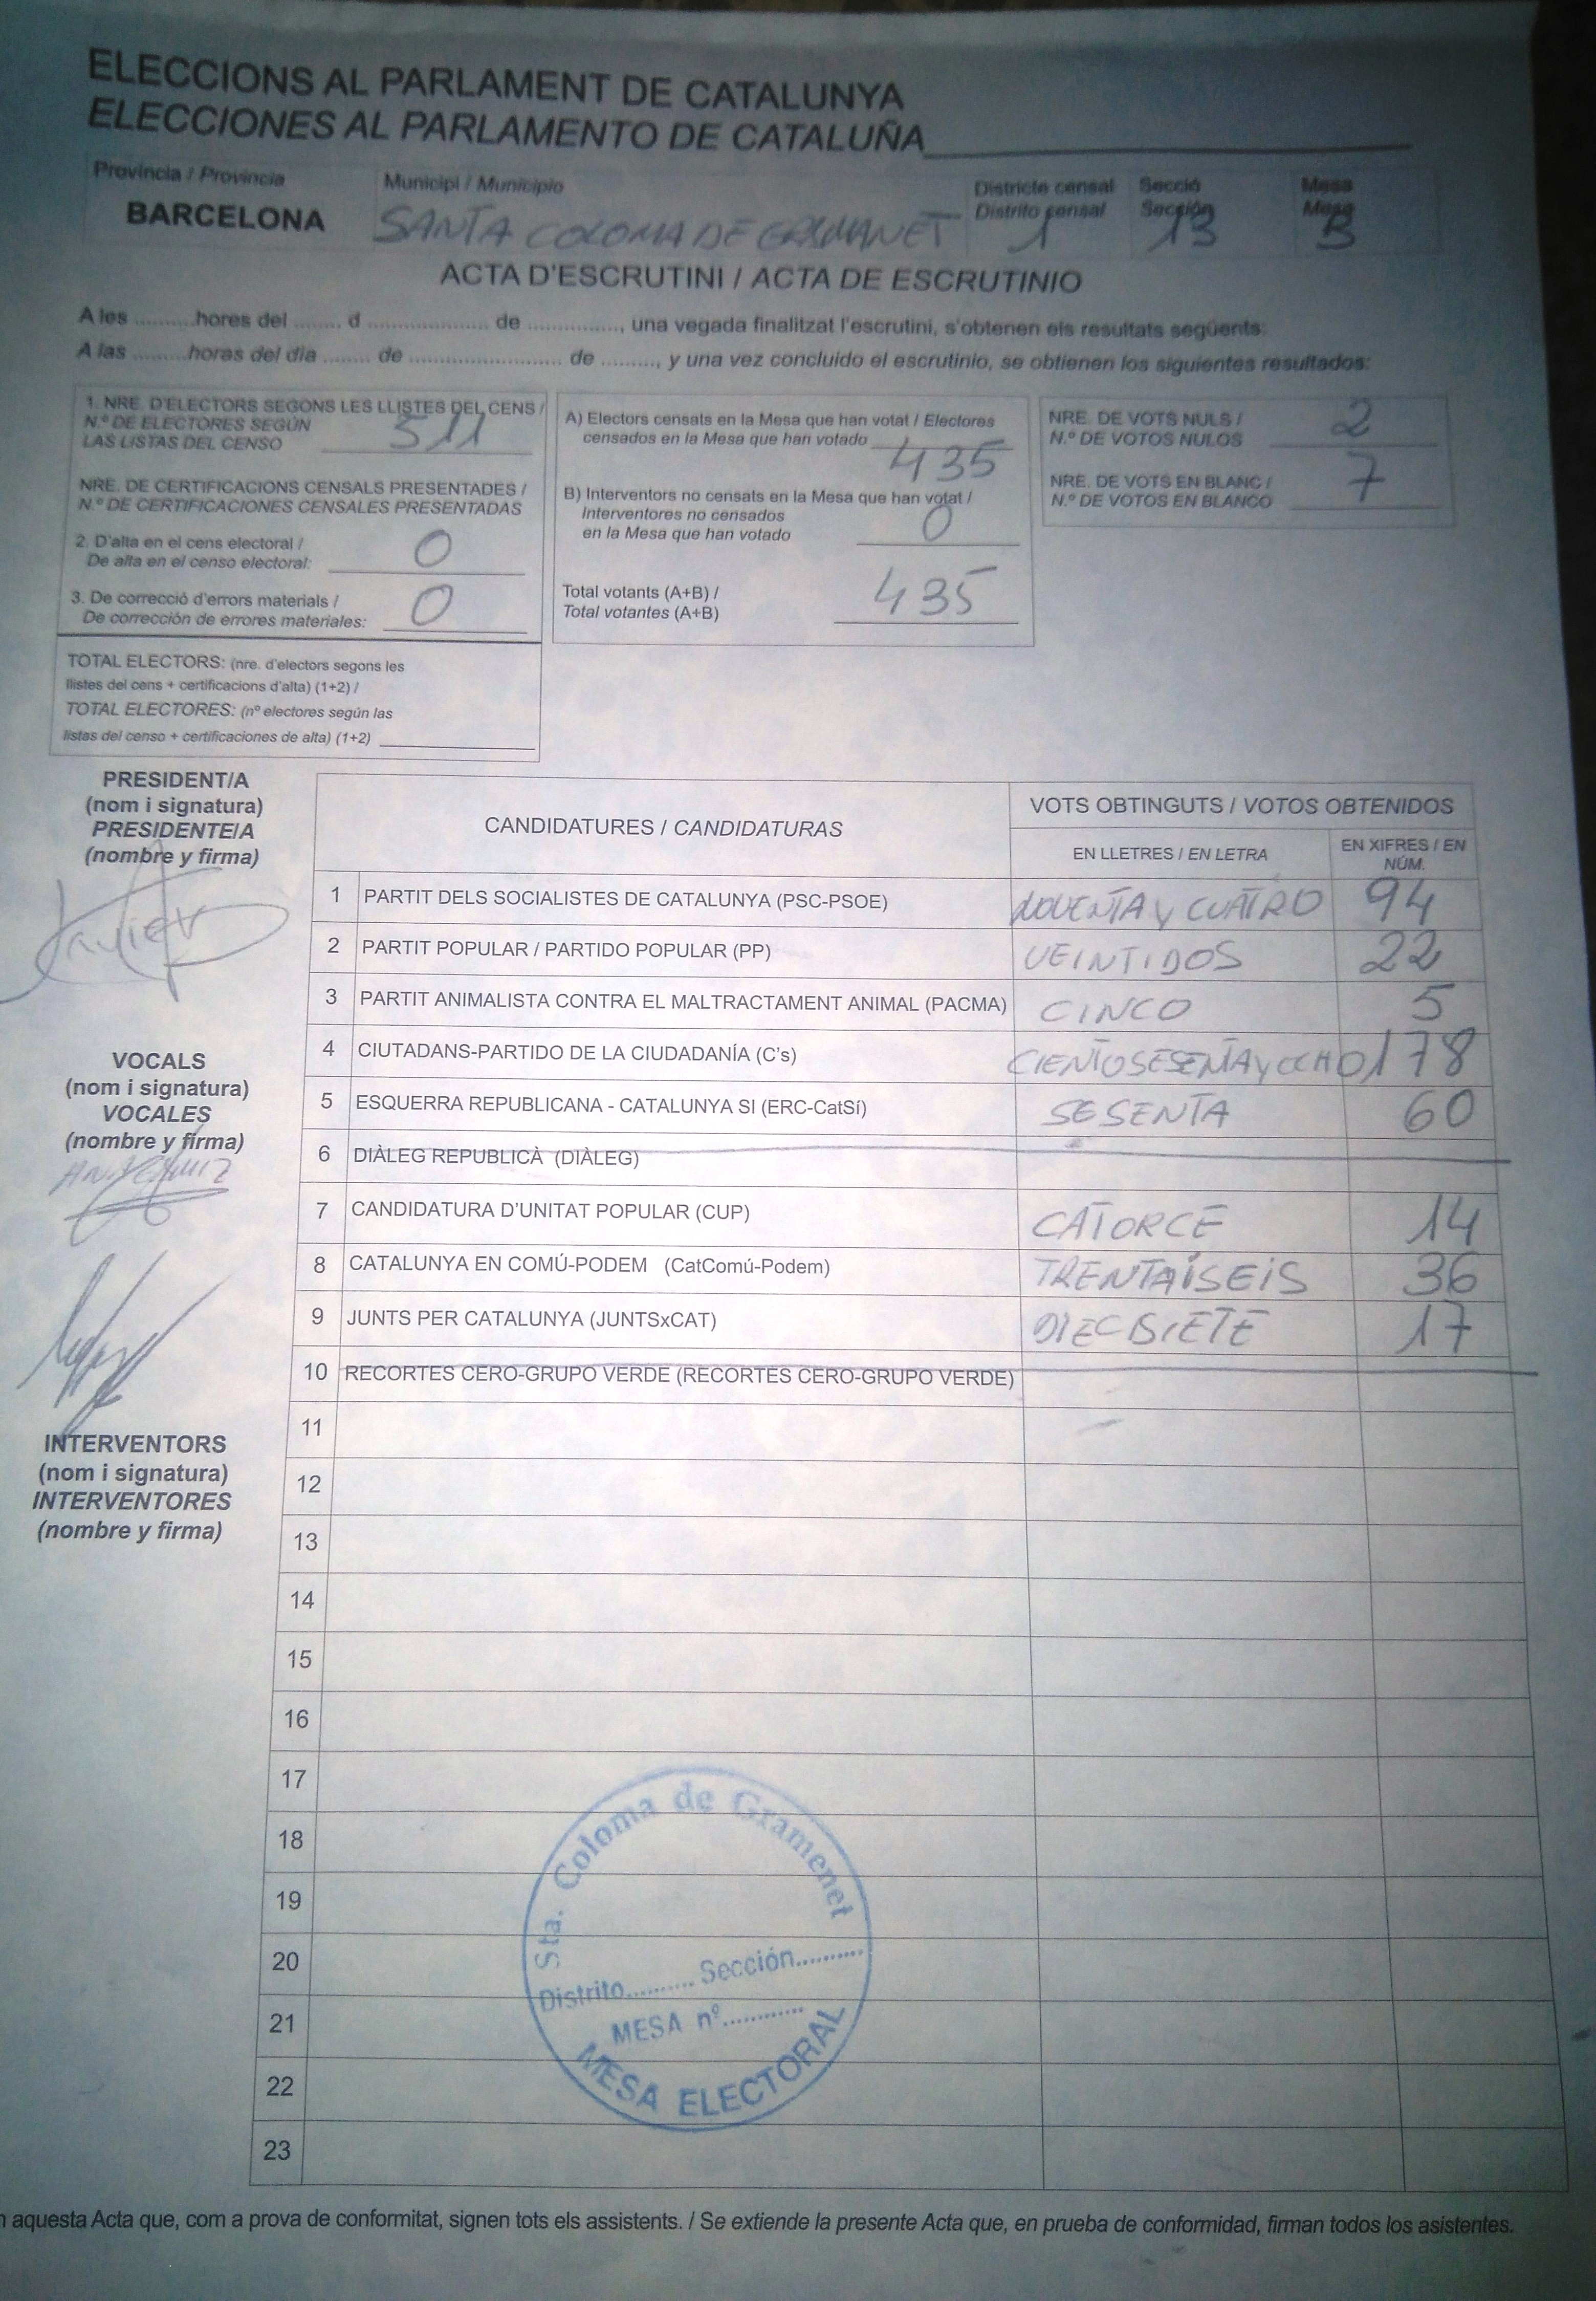 ELECCIONS AL PARLAMENT DE CATALUNYA
ELECCIONES AL PARLAMENTO DE CATALUÑA
Provincia / Provincia
BARCELONA
Municipi / Municipio
SANTA COLOMA DE GRAMANET
Districte censal
Distrito censal
1
Secció
Sección
13
Mesa
Mesa
B
ACTA D'ESCRUTINI / ACTA DE ESCRUTINIO
A les ..........hores del ........ d ..................... de ................, una vegada finalitzat l'escrutini, s'obtenen els resultats següents:
A las .........horas del día ........ de ........................... de ........., y una vez concluido el escrutinio, se obtienen los siguientes resultados:
1. NRE. D'ELECTORS SEGONS LES LLISTES DEL CENS /
N.º DE ELECTORES SEGÚN
LAS LISTAS DEL CENSO 511
NRE. DE CERTIFICACIONS CENSALS PRESENTADES /
N.º DE CERTIFICACIONES CENSALES PRESENTADAS
2. D'alta en el cens electoral /
De alta en el censo electoral: 0
3. De correcció d'errors materials /
De corrección de errores materiales: 0
TOTAL ELECTORS: (nre. d'electors segons les
llistes del cens + certificacions d'alta) (1+2) /
TOTAL ELECTORES: (nº electores según las
listas del censo + certificaciones de alta) (1+2)
A) Electors censats en la Mesa que han votat / Electores
censados en la Mesa que han votado 435
B) Interventors no censats en la Mesa que han votat /
Interventores no censados
en la Mesa que han votado 0
Total votants (A+B) /
Total votantes (A+B) 435
NRE. DE VOTS NULS /
N.º DE VOTOS NULOS 2
NRE. DE VOTS EN BLANC /
N.º DE VOTOS EN BLANCO 7
PRESIDENT/A
(nom i signatura)
PRESIDENTE/A
(nombre y firma)
Javier
VOCALS
(nom i signatura)
VOCALES
(nombre y firma)
INTERVENTORS
(nom i signatura)
INTERVENTORES
(nombre y firma)
CANDIDATURES / CANDIDATURAS
VOTS OBTINGUTS / VOTOS OBTENIDOS
EN LLETRES / EN LETRA
EN XIFRES / EN
NÚM.
1 PARTIT DELS SOCIALISTES DE CATALUNYA (PSC-PSOE) NOVENTA Y CUATRO 94
2 PARTIT POPULAR / PARTIDO POPULAR (PP) VEINTIDOS 22
3 PARTIT ANIMALISTA CONTRA EL MALTRACTAMENT ANIMAL (PACMA) CINCO 5
4 CIUTADANS-PARTIDO DE LA CIUDADANÍA (C's) CIENTO SESENTA Y OCHO 178
5 ESQUERRA REPUBLICANA - CATALUNYA SI (ERC-CatSí) SESENTA 60
6 DIÀLEG REPUBLICÀ (DIÀLEG)
7 CANDIDATURA D'UNITAT POPULAR (CUP) CATORCE 14
8 CATALUNYA EN COMÚ-PODEM (CatComú-Podem) TRENTAISEIS 36
9 JUNTS PER CATALUNYA (JUNTSxCAT) DIECISIETE 17
10 RECORTES CERO-GRUPO VERDE (RECORTES CERO-GRUPO VERDE)
11
12
13
14
15
16
17
18
19
20
21
22
23
Sta. Coloma de Gramenet
Distrito.......... Sección..........
MESA nº............
MESA ELECTORAL
aquesta Acta que, com a prova de conformitat, signen tots els assistents. / Se extiende la presente Acta que, en prueba de conformidad, firman todos los asistentes.